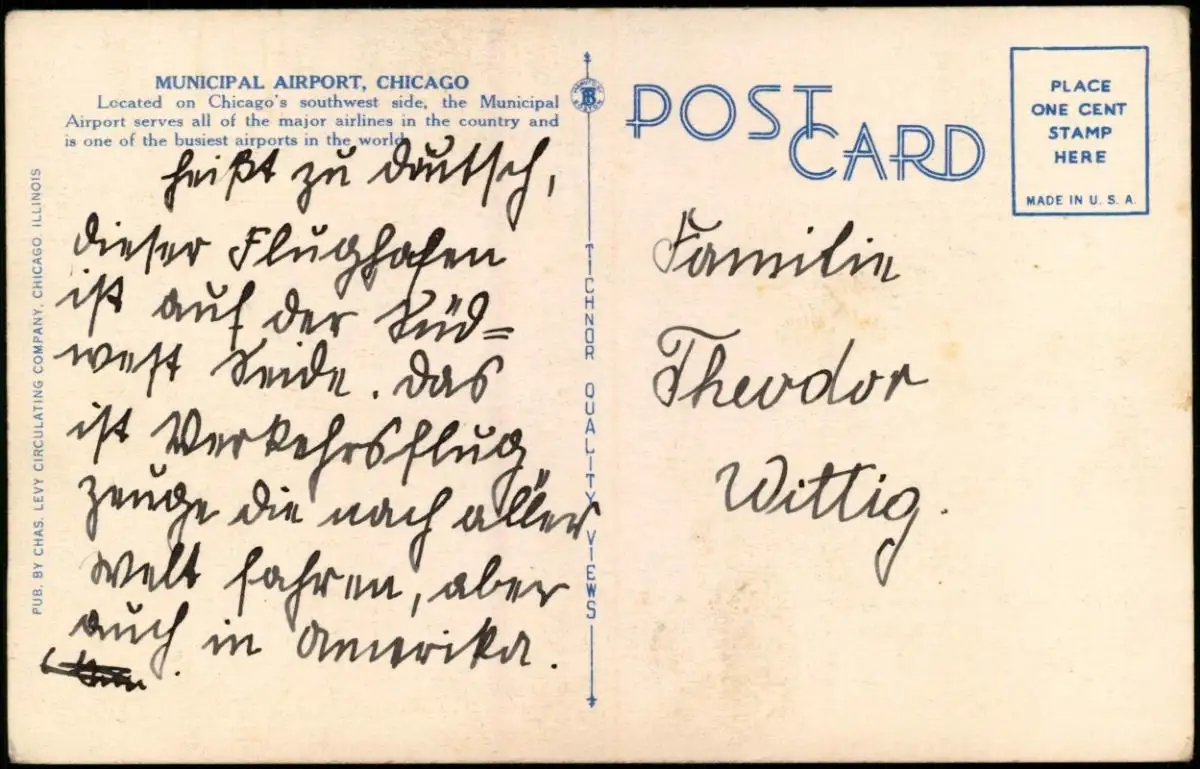 MUNICIPAL AIRPORT, CHICAGO
Located on Chicago's southwest side, the Municipal
Airport serves all of the major airlines in the country and
is one of the busiest airports in the world.
heißt zu deutsch,
dieser Flughafen
ist auf der Süd=
west Seide. Das
ist Verkehrsflug„
zeuge die nach aller
Welt fahren, aber
auch in Amerika.
PUB. BY CHAS. LEVY CIRCULATING COMPANY, CHICAGO, ILLINOIS
TICHNOR QUALITY VIEWS
POST
CARD
PLACE
ONE CENT
STAMP
HERE
MADE IN U. S. A.
Familie
Theodor
Wittig.